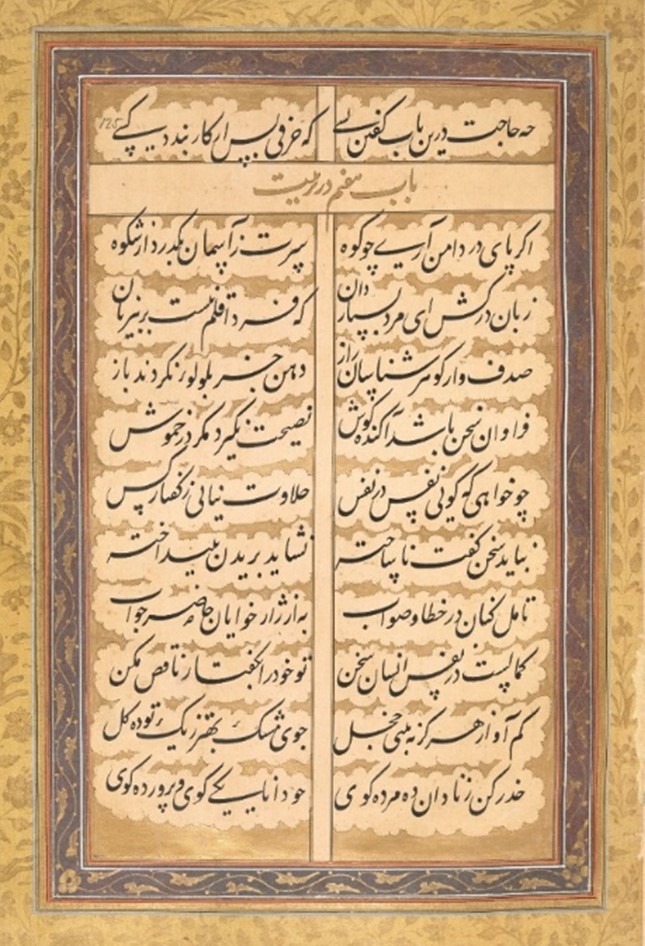 چه حاجت درین باب گفتن بسی که حرفی بس ار کار بندد کسی
باب هفتم در تربیت
اگر پای در دامن آری چو کوه سرت ز آسمان بگذرد از شکوه
زبان درکش ای مرد بسیار دان که فردا قلم نیست بر بی زبان
صدف وار گوهر شناسان راز دهن جز بلولو نکردند باز
فراوان سخن باشد آکنده گوش نصیحت نگیرد مگر در خموش
چو خواهی که گویی نفس در نفس حلاوت نیابی ز گفتار کس
نباید سخن گفت ناساخته نشاید بریدن نینداخته
تامل کنان در خطا و صواب به از ژاژ خایان حاضر جواب
کمالست در نفس انسان سخن تو خود را بگفتار ناقص مکن
کم آواز هرگز نبینی خجل جوی مشک بهتر ز یک توده گل
حذر کن ز نادان ده مرده گوی چو دانا یکی گوی و پرورده گوی